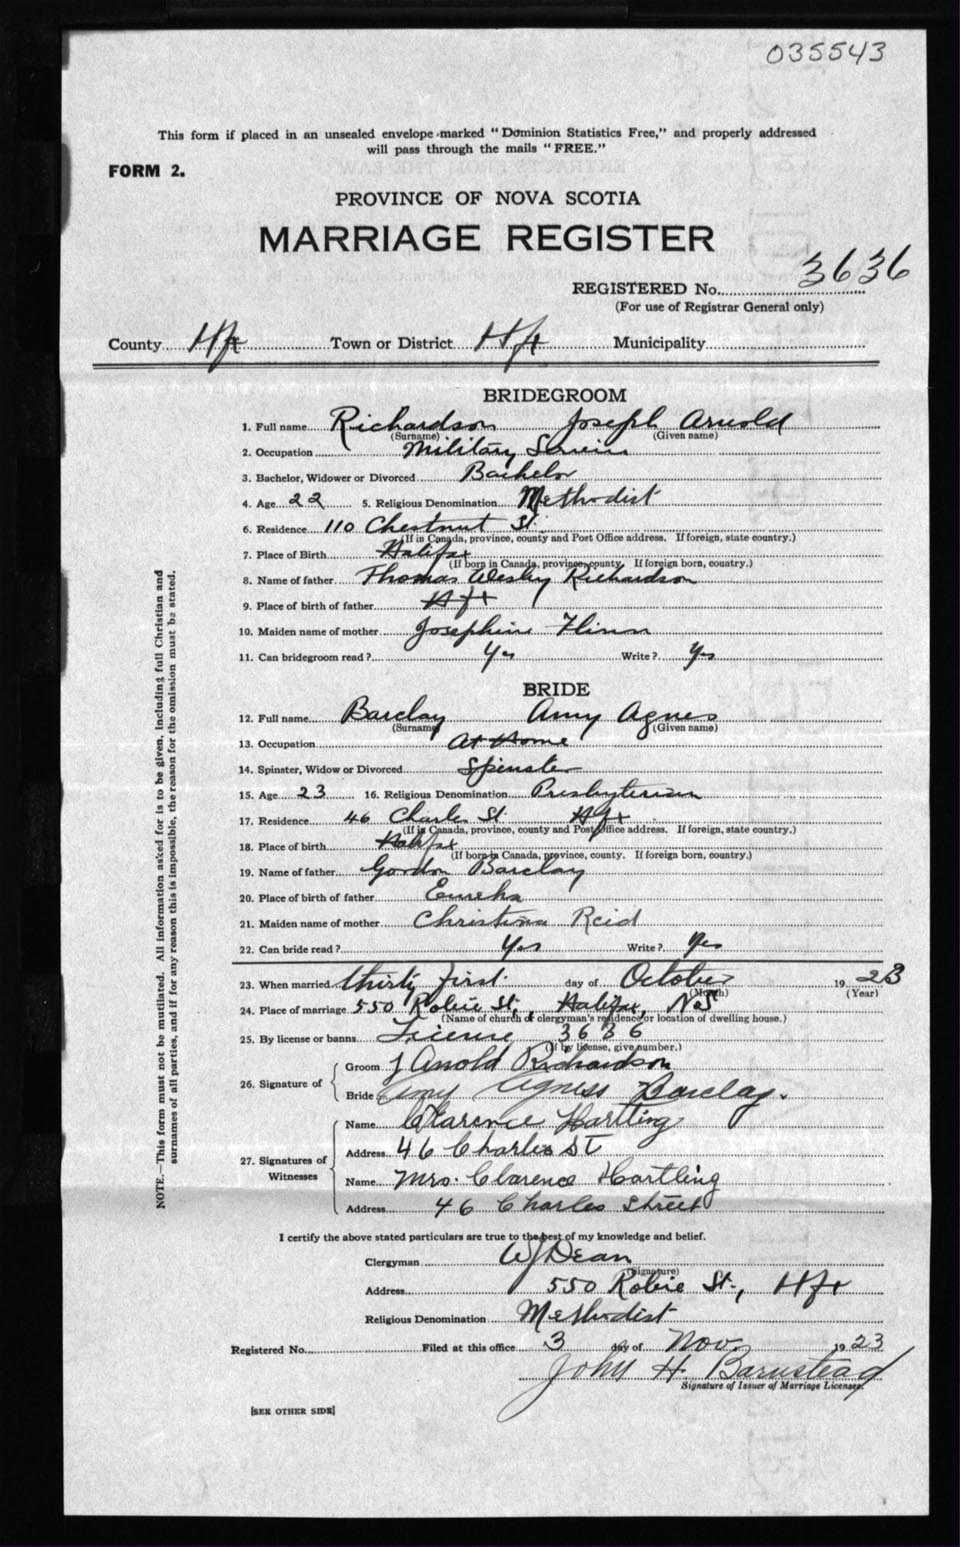 035543
This form if placed in an unsealed envelope marked "Dominion Statistics Free," and properly addressed
will pass through the mails "FREE."
FORM 2.
PROVINCE OF NOVA SCOTIA
MARRIAGE REGISTER
REGISTERED No. 3636
(For use of Registrar General only)
County Hfx Town or District Hfx Municipality
BRIDEGROOM
1. Full name Richardson Joseph Arnold
(Surname) (Given name)
2. Occupation Military Service
3. Bachelor, Widower or Divorced Bachelor
4. Age 22 5. Religious Denomination Methodist
6. Residence 110 Chestnut St.
(If in Canada, province, county and Post Office address. If foreign, state country.)
7. Place of Birth Halifax
(If born in Canada, province, county. If foreign born, country.)
8. Name of father Thomas Wesley Richardson
9. Place of birth of father Hfx
10. Maiden name of mother Josephine Flinn
11. Can bridegroom read? Yes Write? Yes
BRIDE
12. Full name Barclay Amy Agnes
(Surname) (Given name)
13. Occupation At Home
14. Spinster, Widow or Divorced Spinster
15. Age 23 16. Religious Denomination Presbyterian
17. Residence 46 Charles St. Hfx
(If in Canada, province, county and Post Office address. If foreign, state country.)
18. Place of birth Halifax
(If born in Canada, province, county. If foreign born, country.)
19. Name of father Gordon Barclay
20. Place of birth of father Eureka
21. Maiden name of mother Christina Reid
22. Can bride read? Yes Write? Yes
23. When married thirty first day of October 1923
(Month) (Year)
24. Place of marriage 550 Robie St., Halifax, NS
(Name of church or clergyman's residence or location of dwelling house.)
25. By license or banns License 3636
(If by license, give number.)
26. Signature of
Groom J Arnold Richardson
Bride Amy Agness Barclay.
27. Signatures of Witnesses
Name Clarence Hartling
Address 46 Charles St
Name Mrs. Clarence Hartling
Address 46 Charles Street
I certify the above stated particulars are true to the best of my knowledge and belief.
Clergyman W J Dean
(Signature)
Address 550 Robie St., Hfx
Religious Denomination Methodist
Registered No. Filed at this office 3 day of Nov. 1923
John H. Barnstead
Signature of Issuer of Marriage Licenses.
[SEE OTHER SIDE]
NOTE.—This form must not be mutilated. All information asked for is to be given, including full Christian and
surnames of all parties, and if for any reason this is impossible, the reason for the omission must be stated.